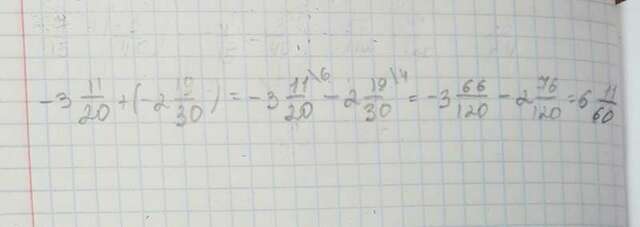 -3 11/20 + (-2 19/30) = -3 11/20 \6 - 2 19/30 \4 = -3 66/120 - 2 76/120 = 6 11/60